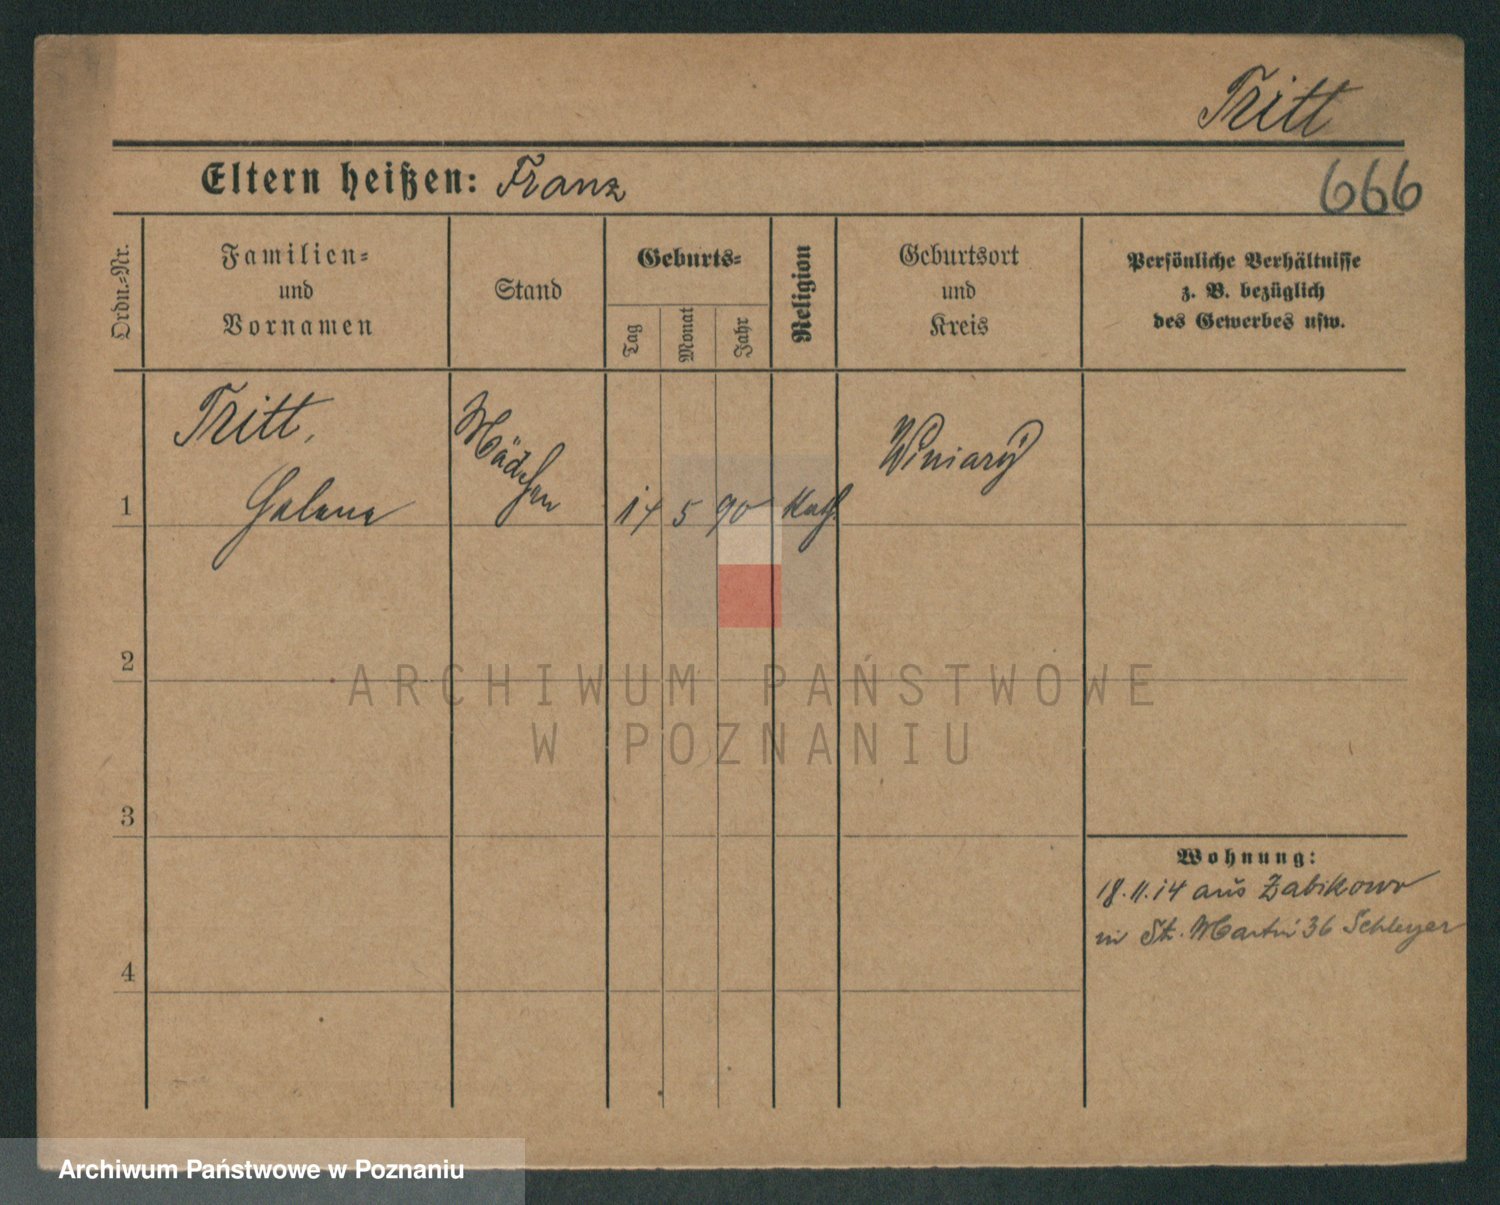 Tritt
Eltern heißen: Franz
666
Ordn.-Nr.
Familien-
und
Vornamen
Stand
Geburts-
Tag
Monat
Jahr
Religion
Geburtsort
und
Kreis
Persönliche Verhältnisse
z. B. bezüglich
des Gewerbes usw.
Tritt,
Helena
Mädchen
14 5 90 Kath.
Winiary
1
2
3
4
Wohnung:
18.11.14 aus Zabikowo
in St. Martin 36 Schleyer
ARCHIWUM PAŃSTWOWE
W POZNANIU
Archiwum Państwowe w Poznaniu